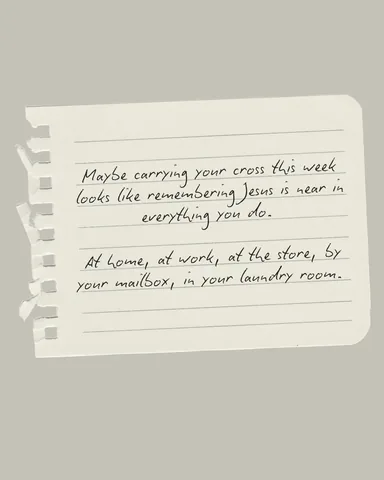 Maybe carrying your cross this week
looks like remembering Jesus is near in
everything you do.
At home, at work, at the store, by
your mailbox, in your laundry room.